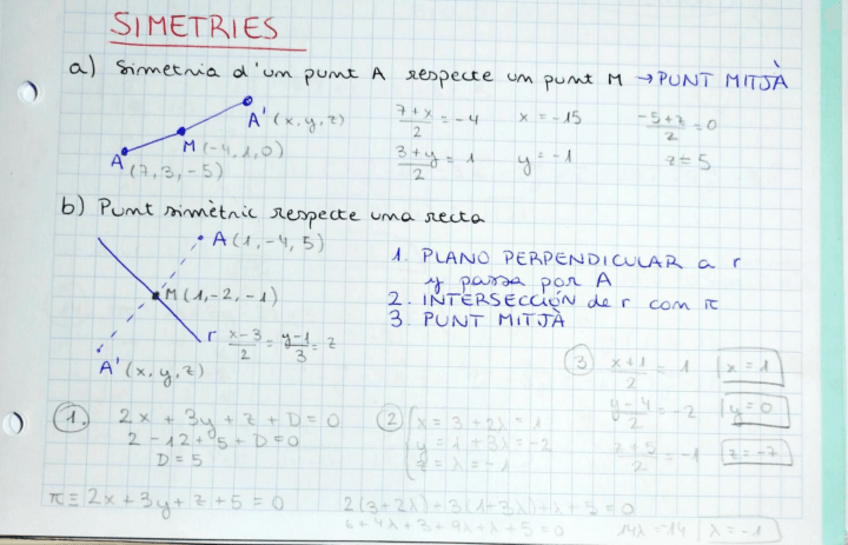 SIMETRIES
a) Simetria d'un punt A respecte un punt M → PUNT MITJÀ
A' (x, y, z)
M (-4, 1, 0)
A (7, 3, -5)
7+x/2 = -4    x = -15    -5+z/2 = 0
3+y/2 = 1    y = -1    z = 5
b) Punt simètric respecte una recta
A (1, -4, 5)
M (1, -2, -1)
r x-3/2 = y-1/3 = z
A' (x, y, z)
1. PLANO PERPENDICULAR a r
y passa por A
2. INTERSECCIÓN de r con π
3. PUNT MITJÀ
1. 2x + 3y + z + D = 0
2 - 12 + 5 + D = 0
D = 5
π ≡ 2x + 3y + z + 5 = 0
2 x = 3 + 2λ = 1
y = 1 + 3λ = -2
z = λ = -1
2(3+2λ) + 3(1+3λ) + λ + 5 = 0
6 + 4λ + 3 + 9λ + λ + 5 = 0    14λ = 14    λ = -1
3 x+1/2 = 1    x = 1
y-4/2 = -2    y = 0
z+5/2 = -1    z = -7